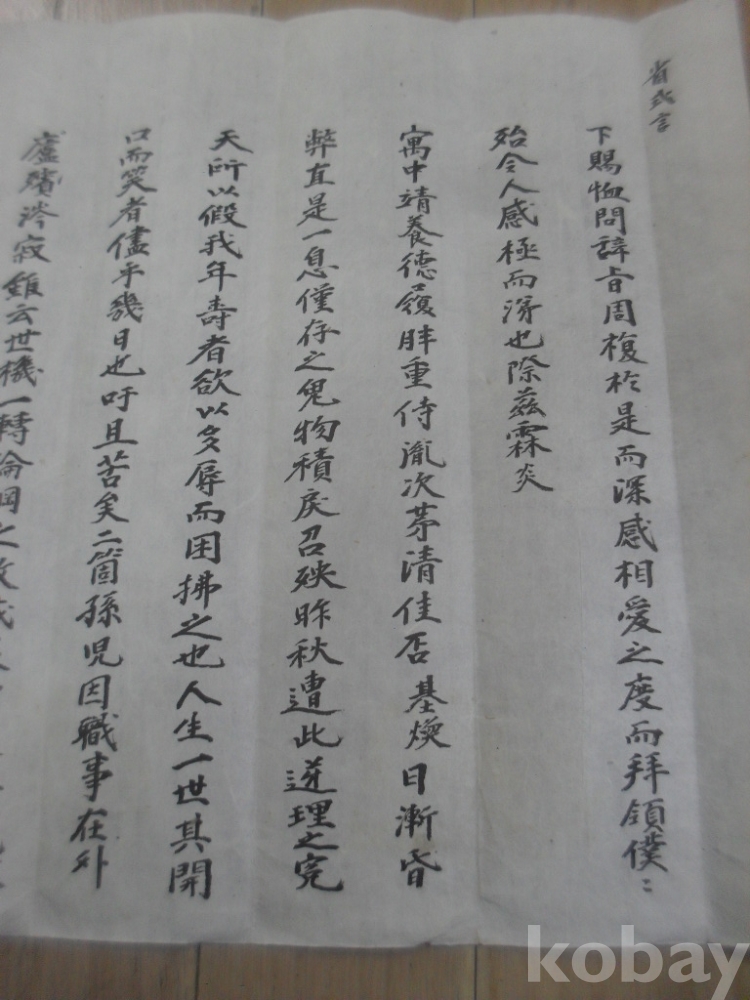 省式言
下賜恤問辭旨周複於是而深感相愛之度而拜領僕〻
殆令人感極而涕也際茲霖炎
寓中靖養德履胖重侍胤次茅清佳否基煥日漸昏
弊直是一息僅存之鬼物積戾召殃昨秋遭此逆理之
天所以假我年壽者欲以多辱而困拂之也人生一世其開
口而笑者儘乎幾日也吁且苦矣二箇孫児因職事在外
廬殯涔寂雖云世機一轉倫
kobay